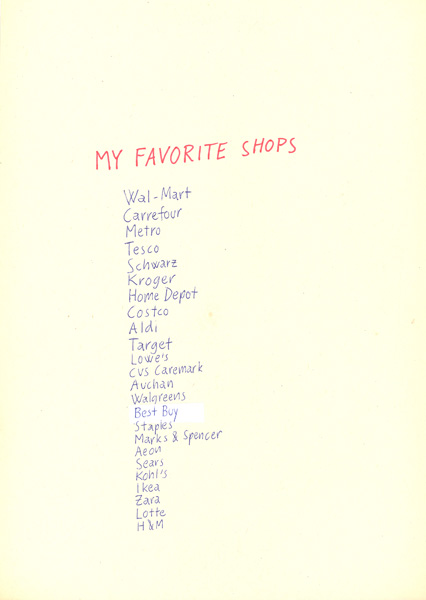 MY FAVORITE SHOPS
Wal-Mart
Carrefour
Metro
Tesco
Schwarz
Kroger
Home Depot
Costco
Aldi
Target
Lowe's
CVS Caremark
Auchan
Walgreens
Best Buy
Staples
Marks & Spencer
Aeon
Sears
Kohl's
Ikea
Zara
Lotte
H&M